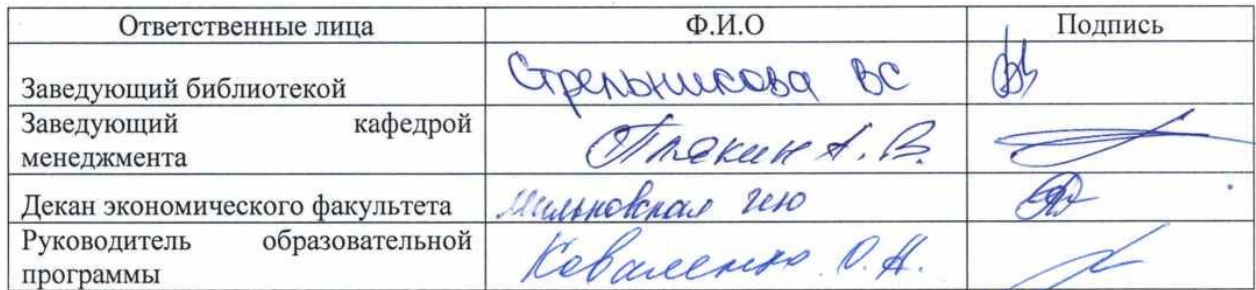 Ответственные лица Ф.И.О Подпись
Заведующий библиотекой Стрельникова ВС
Заведующий кафедрой
менеджмента Плякин А. В.
Декан экономического факультета
Руководитель образовательной
программы Коваленко О. А.